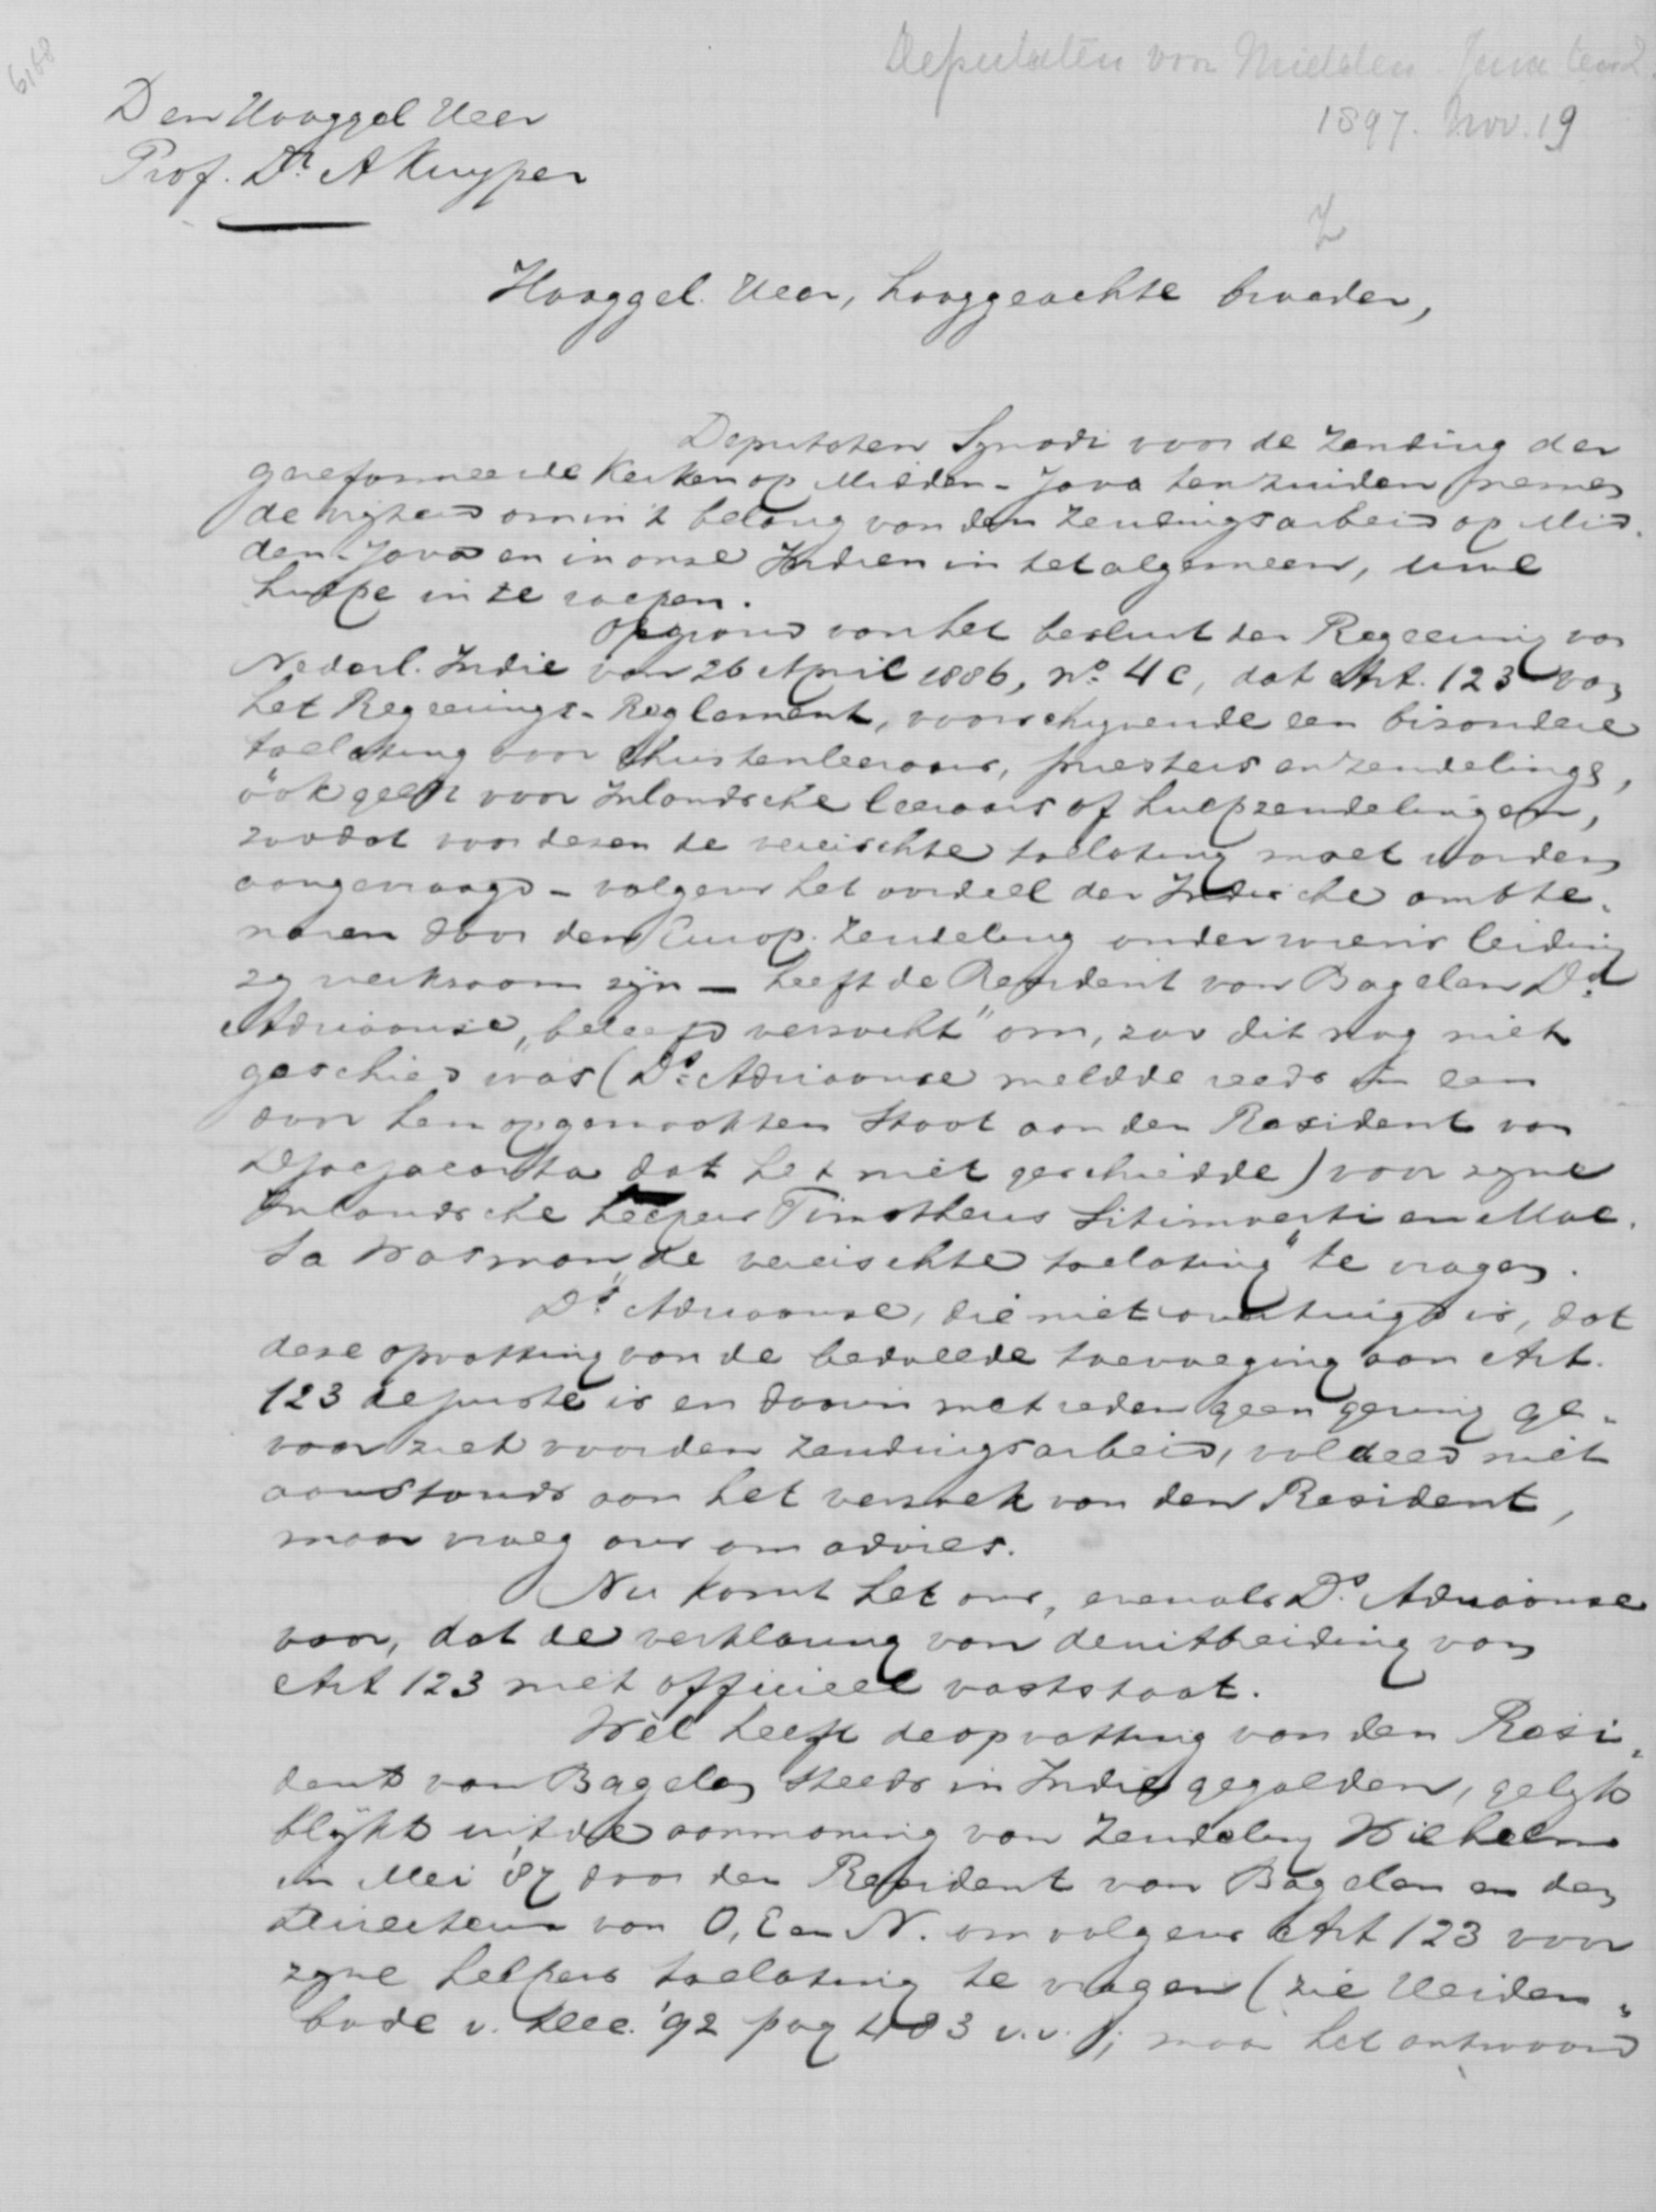 6168
Deputaten van Midden Java tenZ.
1897. Nov. 19
Den Hooggel Heer
Prof. Dr. A Kuyper
Z
Hooggel. Heer, hooggeachte broeder,
Deputaten Synodi voor de Zending der
gereformeerde Kerken op Midden-Java ten zuiden nemen
de vrijheid om in 't belang van den Zendingsarbeid op Mid-
den-Java en in onze Indien in het algemeen, uwe
hulpe in te roepen.
Op grond van het besluit der Regeering van
Nederl. Indie van 26 April 1886, no. 4 c, dat Art. 123 van
het Regeerings-Reglement, voorschrijvende een bizondere
toelating voor Christenleeraars, priesters en zendelings,
"ook geldt voor Inlandsche leeraars of hulpzendelingen,
zoodat voor dezen de vereischte toelating moet worden
aangevraagd - volgens het oordeel der Indische ambte-
naren door den Europ. Zendeling onder wiens leiding
zij werkzaam zijn - heeft de Resident van Bagelen Ds
Adriaanse, "beleefd verzocht" om, zoo dit nog niet
geschied was (Ds. Adriaanse meldde reeds in een
door hem opgemaakten Staat aan den Resident van
Djocjacarta dat het niet geschiedde) voor zijne
Inlandsche helpers Timotheus Sitimverti en Moe-
sa Wasman "de vereischte toelating" te vragen.
Ds. Adriaanse, die niet overtuigd is, dat
deze opvatting van de bedoelde toevoeging aan Art.
123 de juiste is en daarin met reden geen gering ge-
vaar ziet voor den Zendingsarbeid, voldeed niet
aanstonds aan het verzoek van den Resident,
maar vroeg ons om advies.
Nu komt het ons, evenals Ds. Adriaanse
voor, dat de verklaring van de uitbreiding van
Art 123 niet officieel vaststaat.
Wèl heeft de opvatting van den Resi-
dent van Bagelen steeds in Indie gegolden, gelijk
blijkt uit de aanmaning van Zendeling Wilhelm
in Mei '87 door den Resident van Bagelen en den
Directeur van O, E en N. om volgens Art 123 voor
zijne helpers toelating te vragen (zie Heiden-
bode v. Dec. '92 pag 483 v.v.); maar het antwoord